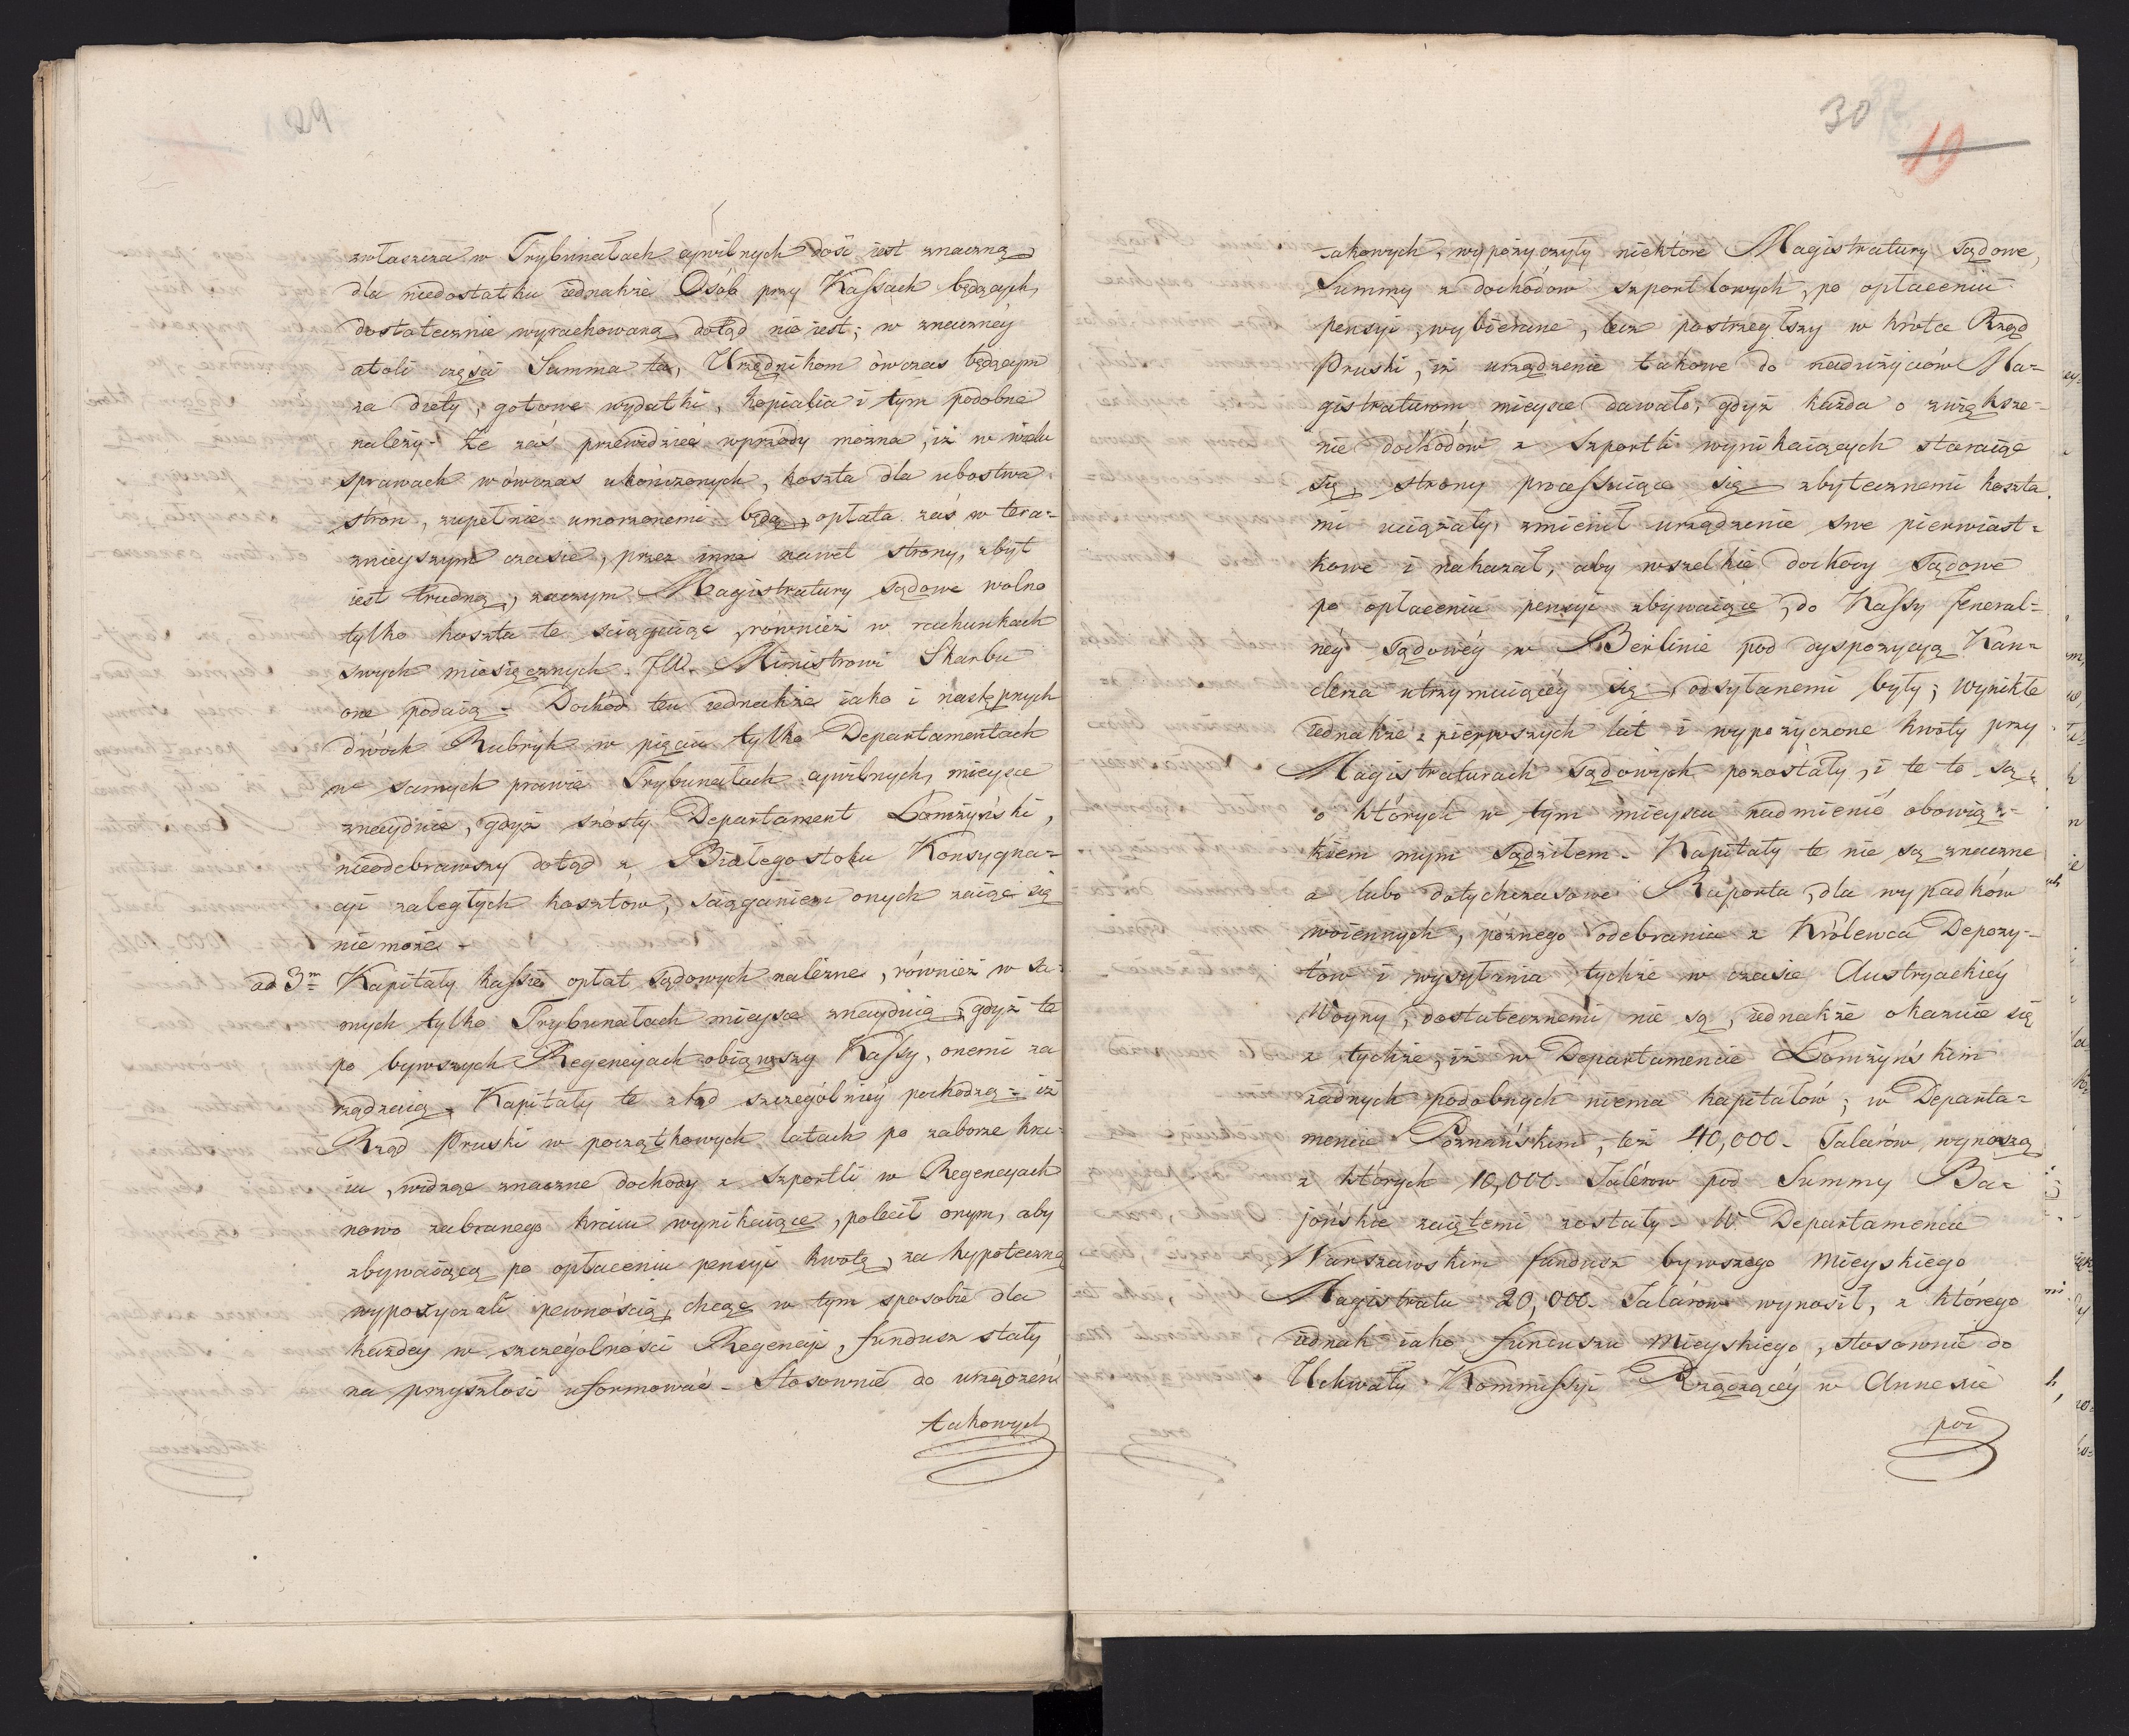 29
zwłaszcza w Trybunałach cywilnych dość iest znaczną
dla niedostatku iednakże Osób przy Kassach będących,
dostatecznie wyrachowaną dotąd nie iest; w znaczney
atoli części Summa ta, Urzędnikom ówczas będącym
za diety, gotowe wydatki, kopialia i tym podobne
należy. Że zaś przewidzieć wprzódy można, iż w wielu
sprawach wówczas ukończonych, koszta dla ubostwa
stron, zupełnie umorzonemi będą, opłata zaś w tera=
znieyszym czasie, przez inne nawet strony, zbyt
iest trudną, zaczym Magistratury sądowe wolno
tylko koszta te ściągaiąc, również w rachunkach
swych miesięcznych JW. Ministrowi Skarbu
one podaią. Dochód ten iednakże iako i następnych
dwóch Rubryk w pięciu tylko Departamentach
we samych prawie Trybunałach cywilnych, mieysce
znayduie, gdyż szósty Departament Łomżyński,
nieodebrawszy dotąd z Białegostoku Konsygna=
cyi zaległych kosztów, ściąganiem onych zaiąć się
nie może.
ad 3m Kapitały kassie opłat sądowych należne, również w sa=
mych tylko Trybunałach mieysce znayduią, gdyż te
po bywszych Regencyach obiąwszy Kassy, onemi za
rządzaią. Kapitały te ztąd szczególniey pochodzą = iż
Rząd Pruski w początkowych latach po zaborze kra=
iu, widząc znaczne dochody z szportli w Regencyach
nowo zabranego kraiu wynikaiące, polecił onym, aby
zbywaiącą po opłaceniu pensyi kwotę, za hypoteczną
wypożyczali pewnością, chcąc w tym sposobie dla
każdey w szczególności Regencyi, fundusz stały
na przyszłość uformować. Stosownie do urządzeń
takowych
30
19
takowych, wypożyczyły niektóre Magistratury sądowe,
Summy z dochodów szportlowych, po opłaceniu
pensyi, wybierane, lecz postrzegłszy w krótce Rząd
Pruski, iż urządzenie takowe do nadużyciów Ma=
gistraturom mieysce dawało, gdyż każda o zwiększe=
nie dochodów z szportli wynikaiących staraiąc
się, strony processuiące się zbytecznemi koszta
mi uciążały, zmienił urządzenie swe pierwiast=
kowe i nakazał, aby wszelkie dochody sądowe
po opłaceniu pensyi zbywaiące, do Kassy General=
ney sądowey w Berlinie pod dyspozycyą Kan=
clerza utrzymuiącey się, odsyłanemi były; wynikłe
iednakże z pierwszych lat i wypożyczone kwoty przy
Magistraturach sądowych pozostały, i te to są,
o których w tym mieyscu nadmienić obowiąz=
kiem mym sądziłem. Kapitały te nie są znaczne
a lubo dotychczasowe Raporta, dla wypadków
woiennych, późnego odebrania z Królewca Depozy=
tów i wysyłania tychże w czasie Austryackiey
Woyny, dostatecznemi nie są, iednakże okazuie się
z tychże, iż w Departamencie Łomżyńskim
żadnych podobnych niema kapitałów; w Departa=
mencie Poznańskim, też 40,000. Talarów wynoszą
z których 10,000. Talerow pod Summy Ba=
jońskie zaiętemi zostały. W Departamencie
Warszawskim fundusz bywszego Mieyskiego
Magistratu 20,000. Talarów wynosił, z którego
iednak iako funduszu Mieyskiego, stosownie do
Uchwały Kommissyi Rządzącey w Annexie